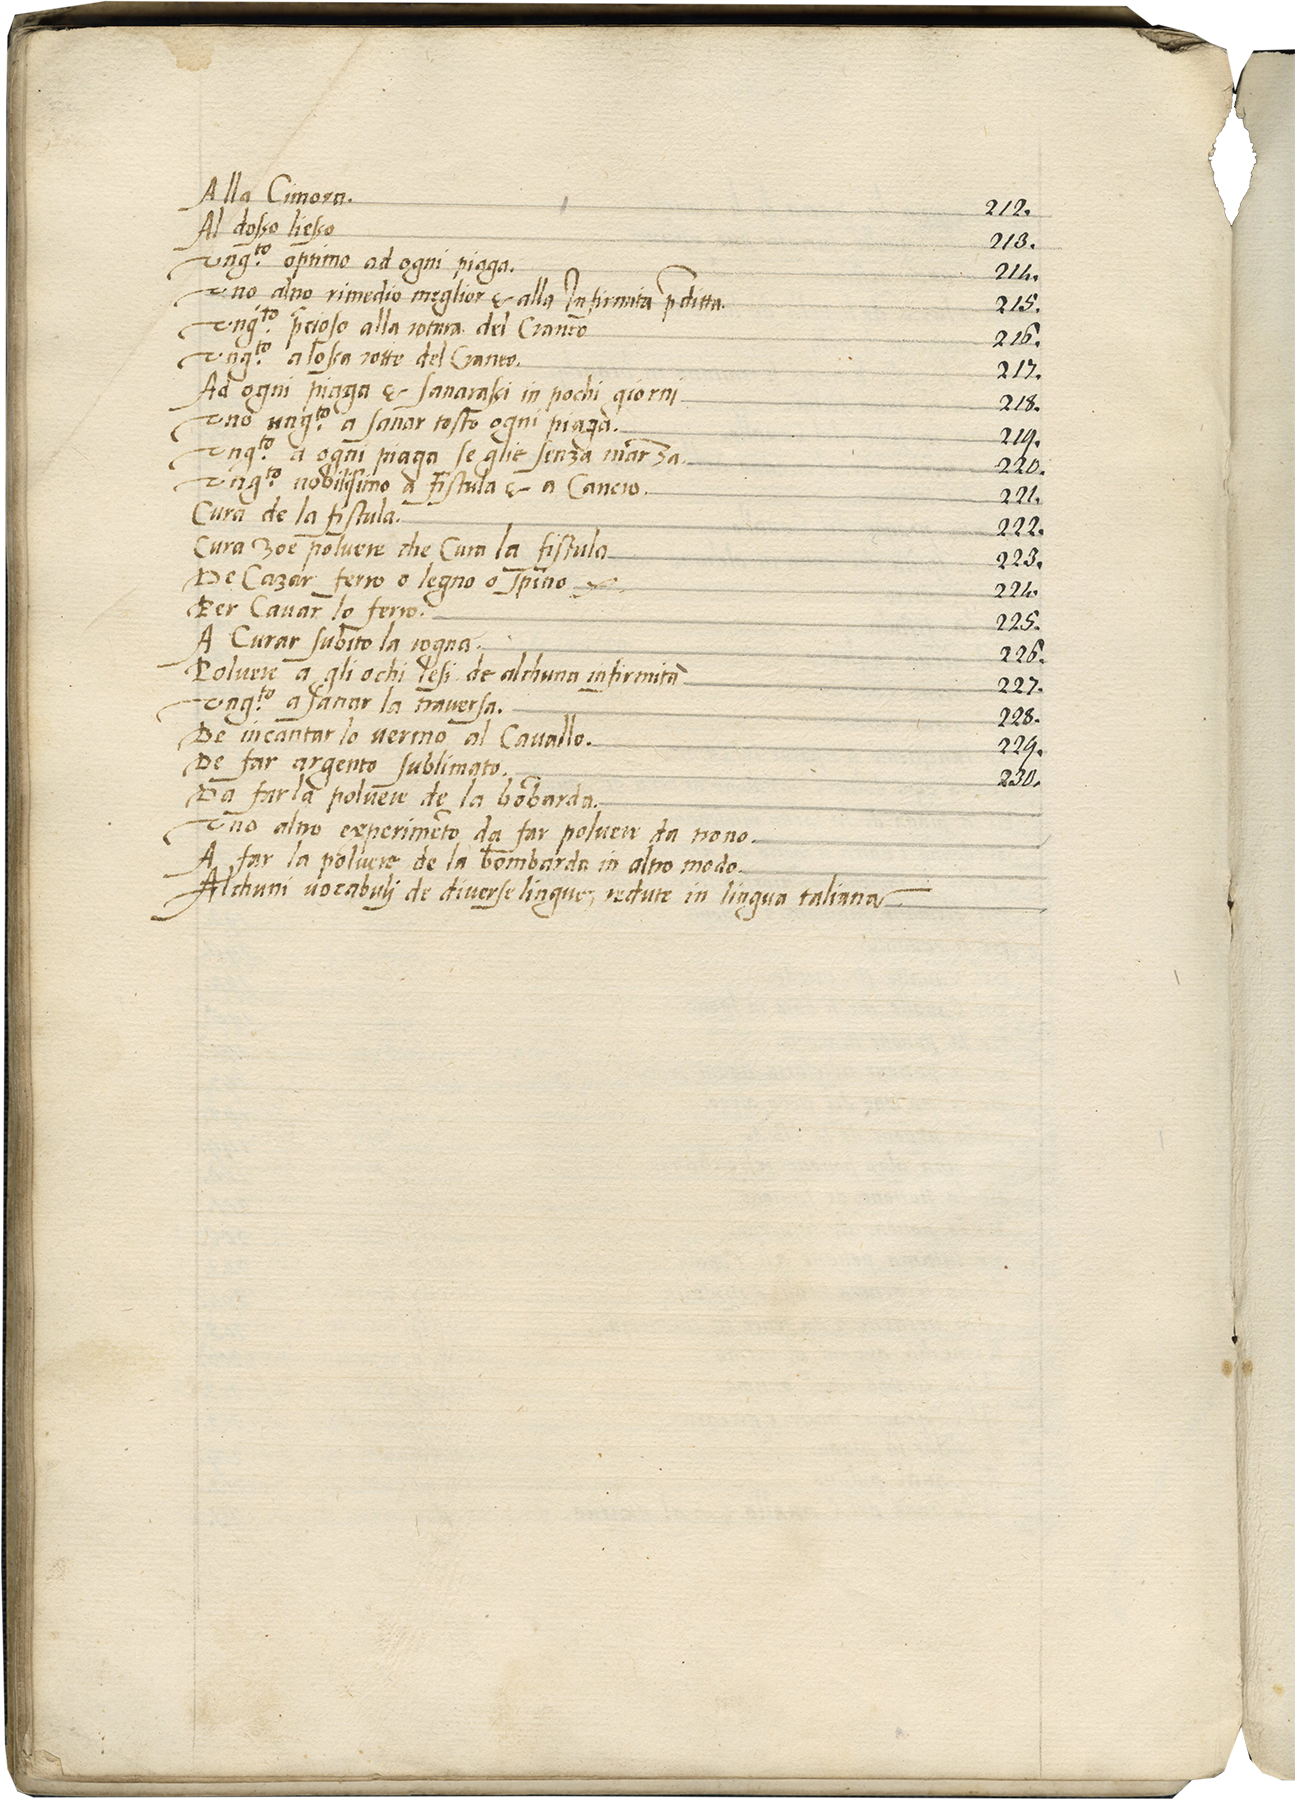 Alla Cimora. 212.
Al dosso lieso 213.
Vng.to optimo ad ogni piaga. 214.
Vno altro rimedio meglior & alla Infirmita pditta. 215.
Vng.to pcioso alla rotura del Craneo 216.
Vng.to a lossa rotte del Craneo. 217.
Ad ogni piaga & sanarassi in pochi giorni 218.
Vno ung.to a sanar tosto ogni piaga. 219.
Vng.to a ogni piaga se glie senza marza. 220.
Vng.to nobilissimo a Fistula & a Cancro. 221.
Cura de la fistula. 222.
Cura zoe poluere che Cura la fistula 223.
De Cazar ferro o legno o spino 224.
Per Cauar lo ferro. 225.
A Curar subito la rogna. 226.
Poluere a gli ochi lesi de alchuna infirmita 227.
Vng.to a sanar la trauersa. 228.
De incantar lo vermo al Cauallo. 229.
De far argento sublimato. 230.
Da far la poluere de la bobarda.
Vno altro experimeto da far poluere da trono.
A far la poluere de la bombarda in altro modo.
Alchuni vocabulj de diuerse lingue, redute in lingua taliana